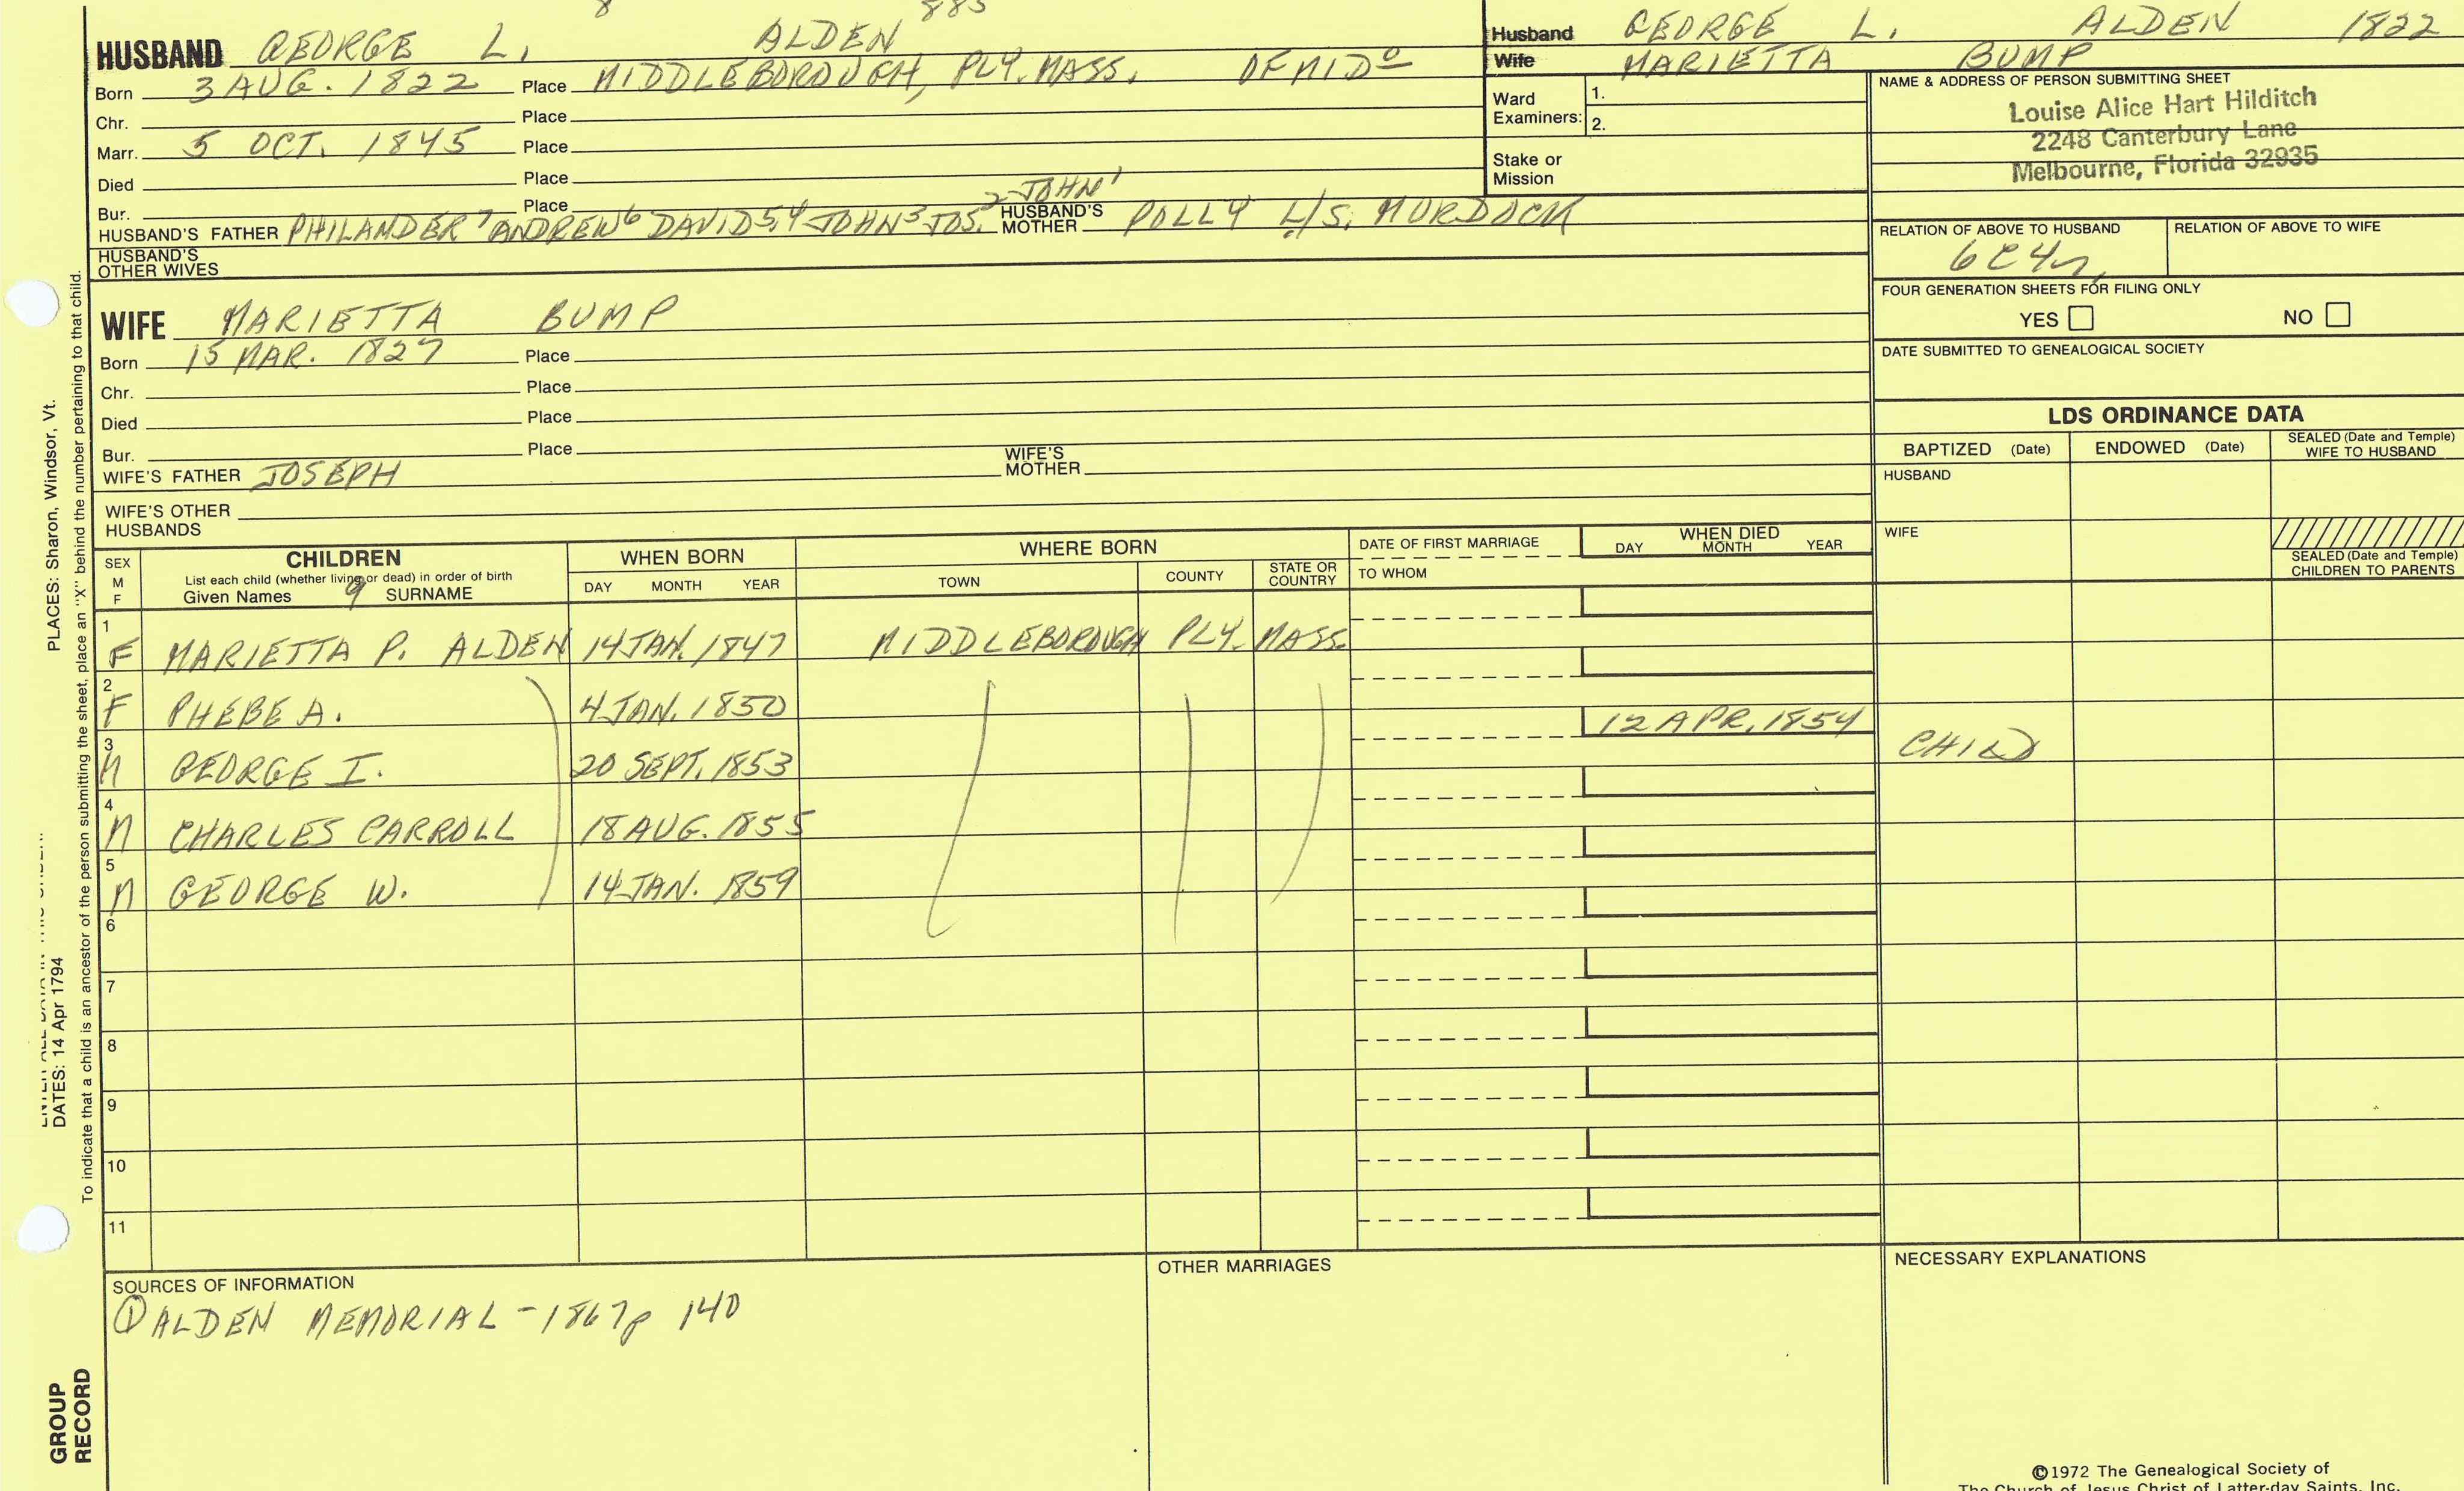 8 885
HUSBAND GEORGE L. ALDEN
Born 3 AUG. 1822 Place MIDDLEBOROUGH, PLY. MASS. OF MIDº
Chr. Place
Marr. 5 OCT. 1845 Place
Died Place
Bur. Place
HUSBAND'S FATHER PHILANDER 7 ANDREW 6 DAVID 5,4 JOHN 3 JOS. 2 JOHN 1 HUSBAND'S MOTHER POLLY L/S. MURDOCK
HUSBAND'S OTHER WIVES
WIFE MARIETTA BUMP
Born 15 MAR. 1827 Place
Chr. Place
Died Place
Bur. Place
WIFE'S FATHER JOSEPH WIFE'S MOTHER
WIFE'S OTHER HUSBANDS
Husband GEORGE L. ALDEN 1822
Wife MARIETTA BUMP
Ward Examiners: 1.
2.
Stake or Mission
NAME & ADDRESS OF PERSON SUBMITTING SHEET
Louise Alice Hart Hilditch
2248 Canterbury Lane
Melbourne, Florida 32935
RELATION OF ABOVE TO HUSBAND RELATION OF ABOVE TO WIFE
6C4r
FOUR GENERATION SHEETS FOR FILING ONLY
YES NO
DATE SUBMITTED TO GENEALOGICAL SOCIETY
LDS ORDINANCE DATA
BAPTIZED (Date) ENDOWED (Date) SEALED (Date and Temple) WIFE TO HUSBAND
HUSBAND
WIFE
SEALED (Date and Temple) CHILDREN TO PARENTS
SEX M F
CHILDREN
List each child (whether living or dead) in order of birth
Given Names 9 SURNAME
WHEN BORN
DAY MONTH YEAR
WHERE BORN
TOWN COUNTY STATE OR COUNTRY
DATE OF FIRST MARRIAGE
TO WHOM
WHEN DIED
DAY MONTH YEAR
1 F MARIETTA P. ALDEN 14 JAN. 1847 MIDDLEBOROUGH PLY. MASS.
2 F PHEBE A. 4 JAN. 1850
3 M GEORGE I. 20 SEPT. 1853 12 APR. 1854 CHILD
4 M CHARLES CARROLL 18 AUG. 1855
5 M GEORGE W. 14 JAN. 1859
6
7
8
9
10
11
SOURCES OF INFORMATION
① ALDEN MEMORIAL - 1867 p 140
OTHER MARRIAGES
NECESSARY EXPLANATIONS
©1972 The Genealogical Society of
The Church of Jesus Christ of Latter-day Saints, Inc.
PLACES: Sharon, Windsor, Vt.
DATES: 14 Apr 1794
To indicate that a child is an ancestor of the person submitting the sheet, place an "X" behind the number pertaining to that child.
GROUP
RECORD